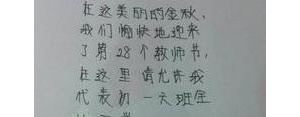 在这美丽的金秋，
我们愉快地迎来
了第28个教师节，
在这里请允许我
代表初一六班全